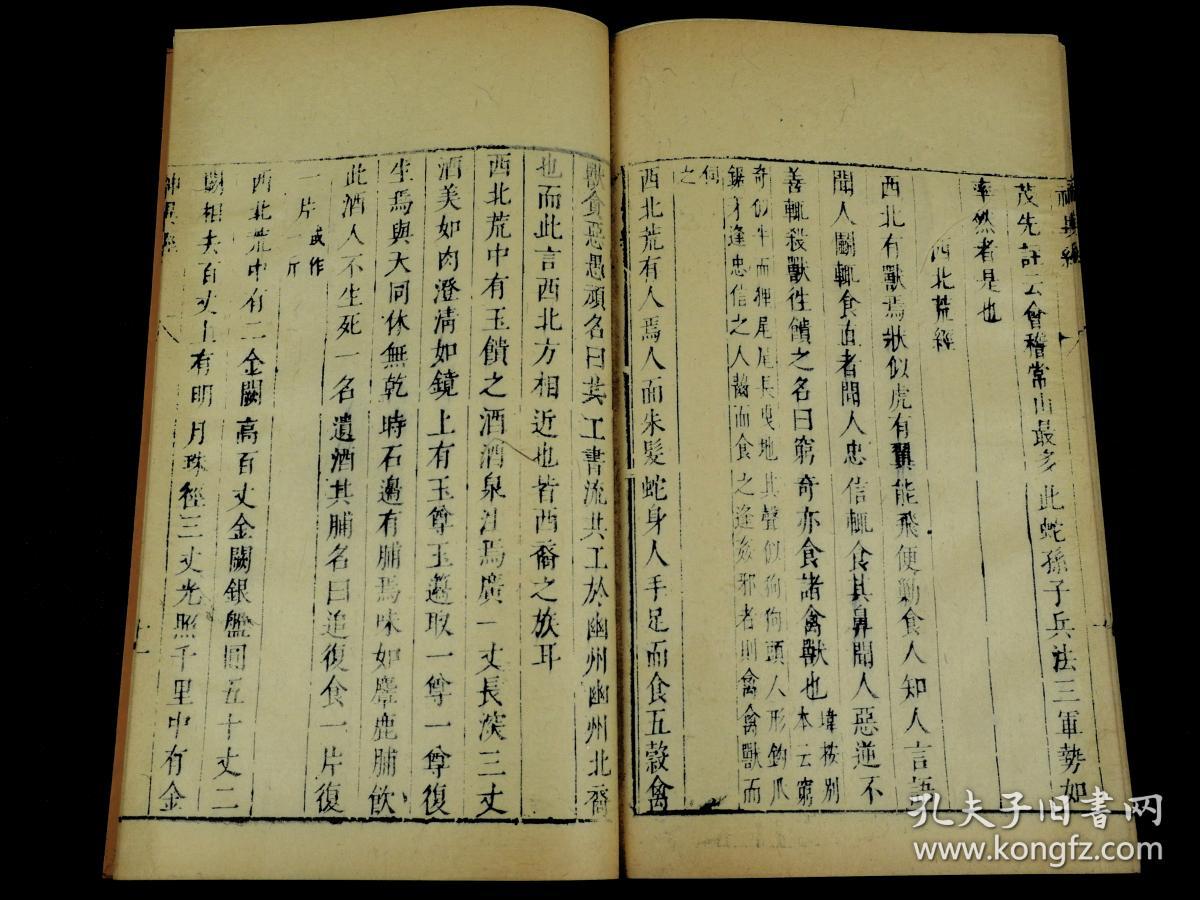 神異經
茂先註云會稽常山最多此蛇孫子兵法三軍勢如
率然者是也
西北荒經
西北有獸焉狀似虎有翼能飛便勦食人知人言語
聞人鬭輒食直者聞人忠信輒食其鼻聞人惡逆不
善輒殺獸徃饋之名曰窮奇亦食諸禽獸也
瑋桉別
本云窮
奇似牛而狸尾尾長曳地其聲似狗狗頭人形鈎爪
鋸牙逢忠信之人齧而食之逢姦邪者則禽禽獸而
伺
之
西北荒有人焉人面朱髮蛇身人手足而食五穀禽
獸貪惡愚頑名曰共工書流共工於幽州幽州北裔
也而此言西北方相近也皆西裔之族耳
西北荒中有玉饋之酒酒泉注焉廣一丈長深三丈
酒美如肉澄清如鏡上有玉尊玉籩取一尊一尊復
生焉與天同休無乾時石邊有脯焉味如麞鹿脯飲
此酒人不生死一名遺酒其脯名曰追復食一片復
一片
或作
一斤
西北荒中有二金闕高百丈金闕銀盤圓五十丈二
闕相去百丈上有明月珠徑三丈光照千里中有金
神異經
十一
孔夫子旧书网
www.kongfz.com